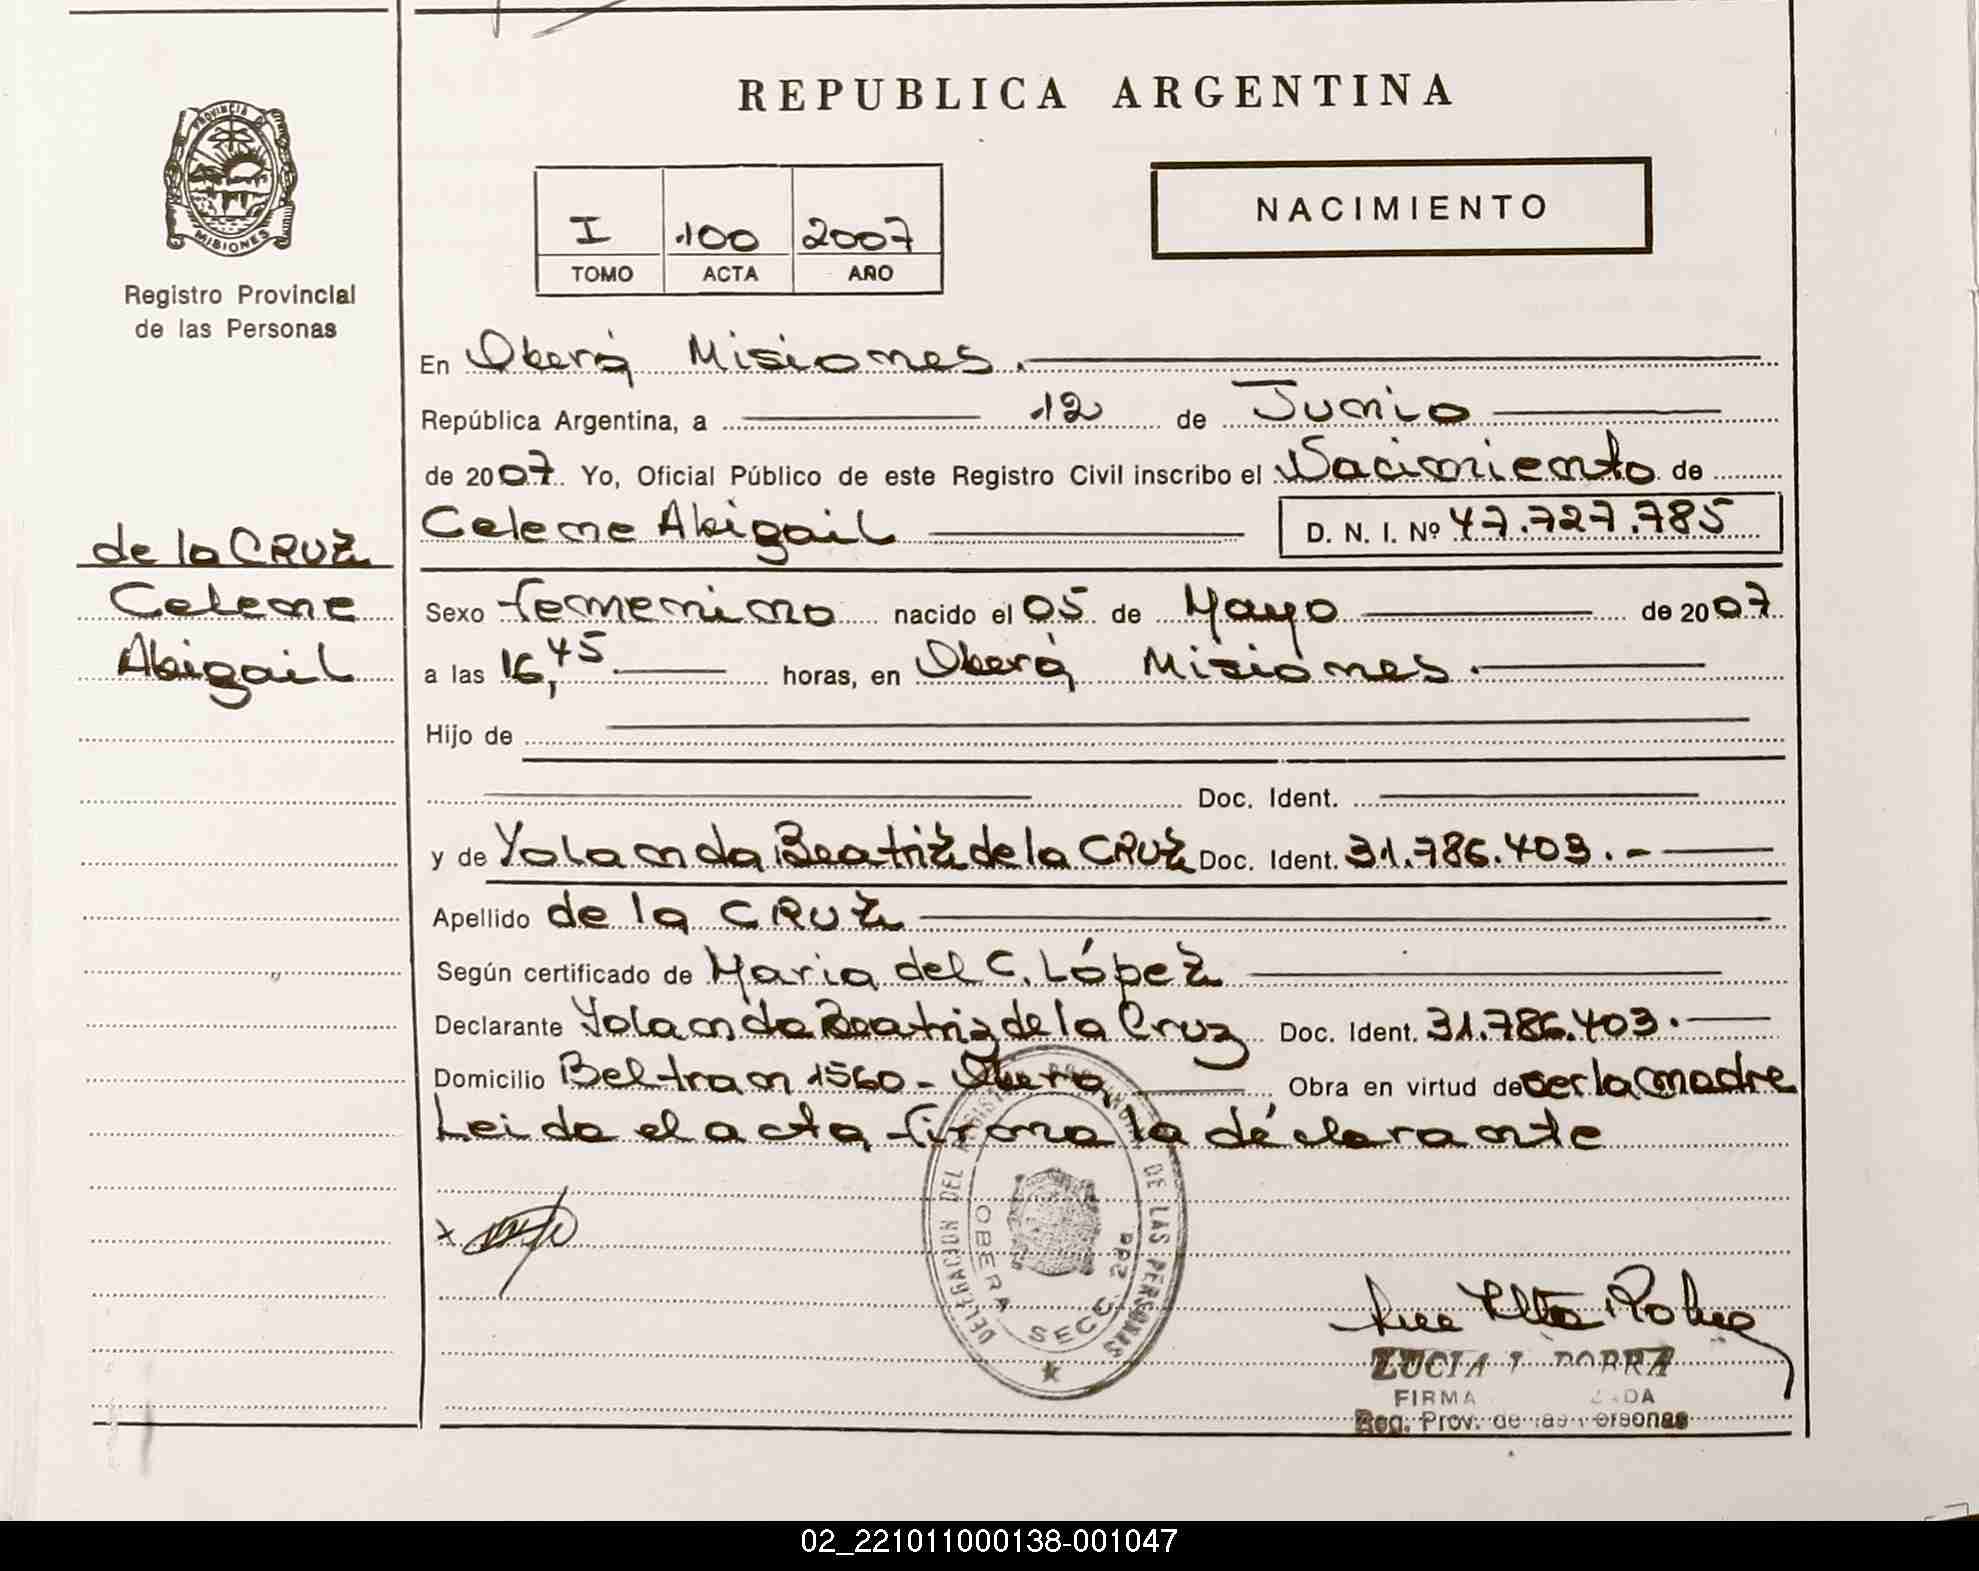 REPUBLICA ARGENTINA
PROVINCIA DE
MISIONES
Registro Provincial
de las Personas
I 100 2007
TOMO ACTA AÑO
NACIMIENTO
En Oberá Misiones.
República Argentina, a 12 de Junio
de 2007. Yo, Oficial Público de este Registro Civil inscribo el Nacimiento de
Celene Abigail D. N. I. Nº 47.727.785
de la CRUZ
Celene
Abigail
Sexo femenino nacido el 05 de Mayo de 2007
a las 16,45 horas, en Oberá Misiones.
Hijo de
Doc. Ident.
y de Yolanda Beatriz de la CRUZ Doc. Ident. 31.786.403.-
Apellido de la CRUZ
Según certificado de Maria del C. López
Declarante Yolanda Beatriz de la Cruz Doc. Ident. 31.786.403.
Domicilio Beltram 1560 - Oberá Obra en virtud de ser la madre
Leida el acta firma la declarante
x
DELEGACION DEL REGISTRO PROVINCIAL DE LAS PERSONAS
OBERA SECC. 2da
LUCIA
FIRMA
Reg. Prov. de las Personas
02_221011000138-001047